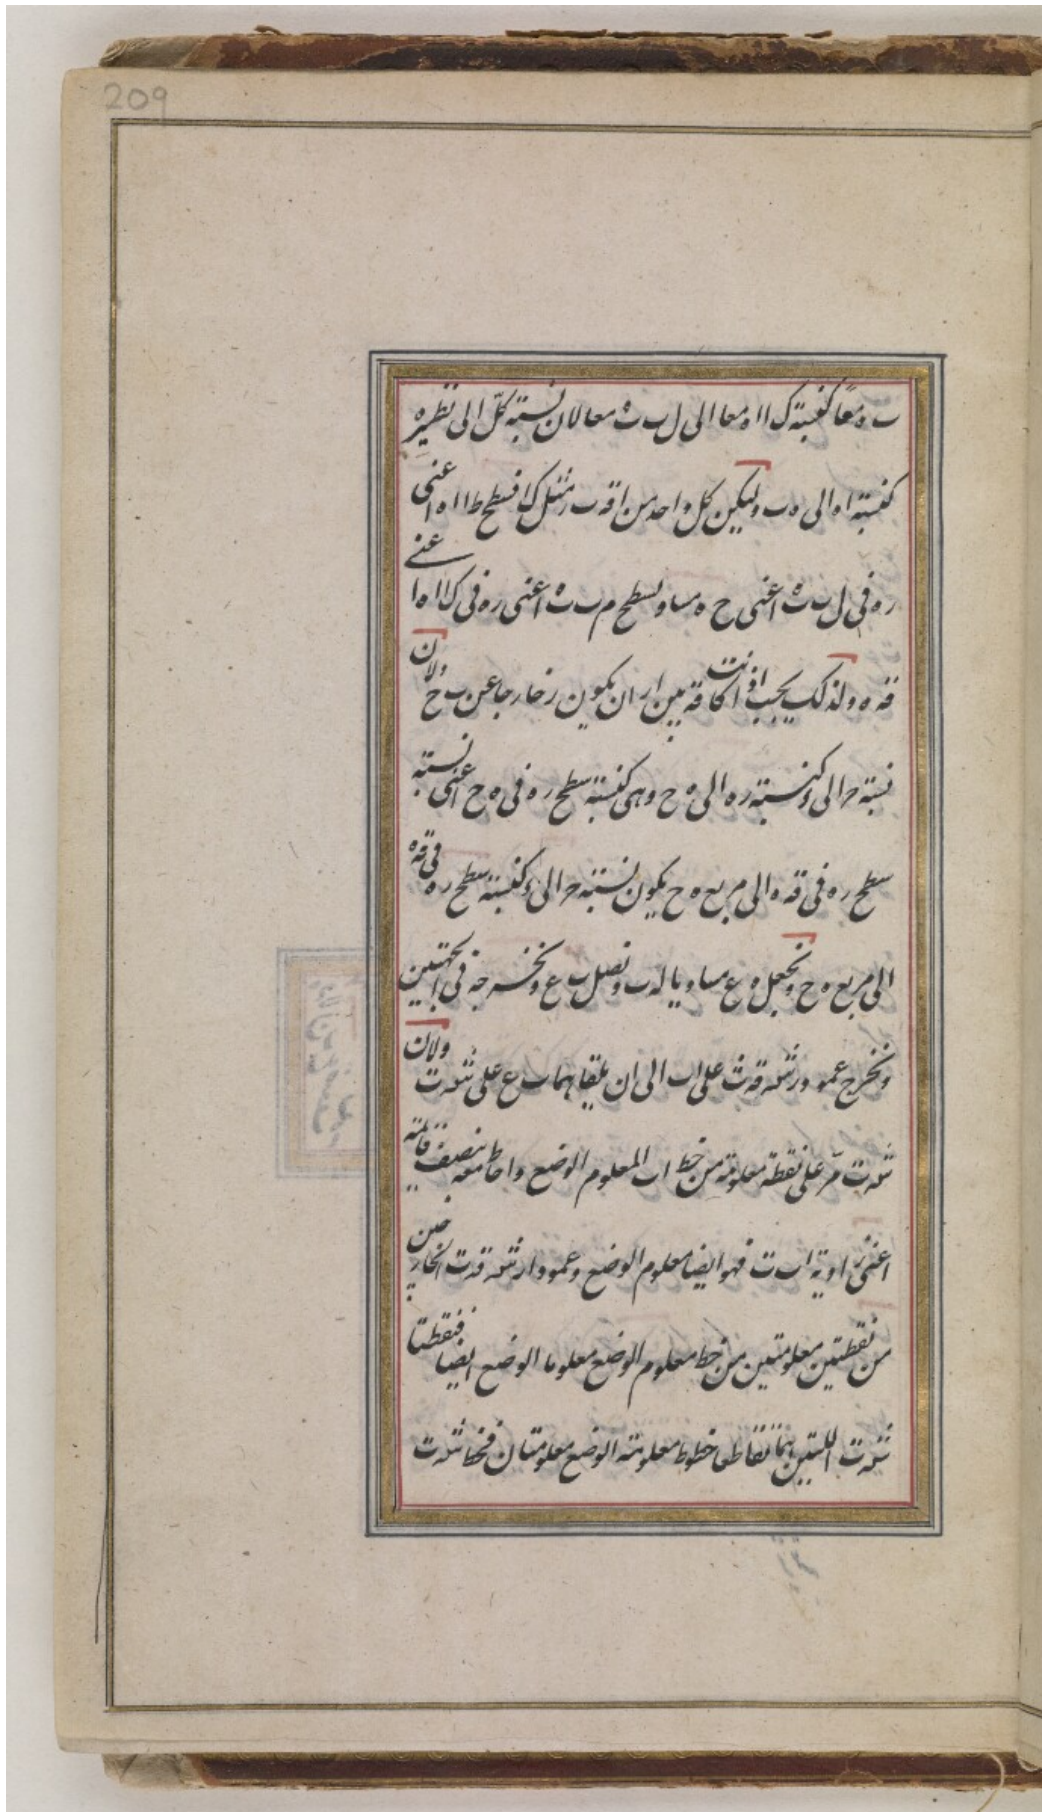 209
ب ه معًا كنسبة ك ا ا ه معا الى ل ب ث معا لان نسبة كلّ الى نظيره
كنسبة ا ه الى ه ب وليكن كل واحد من ا قه ب ر مثل ك ا فسطح ط ا ا ه اعنى
ره فى ل ب ث اعنى ح ه مساو لسطح م ب ث اعنى ره فى ك ا ا ه اعنى
قه ه ولذلك يجب اذا كانت قه بين ا ر ان يكون ر خارجا عن ب ح ولان
نسبة ح الى د كنسبة ره الى ه ح وهى كنسبة سطح ره فى ه ح اعنى نسبة
سطح ره فى قه ه الى مربع ه ح يكون نسبة ح الى د كنسبة سطح ره فى قه ه
الى مربع ه ح ونجعل ه ع مساويا له ب ونصل ب ع ونخرجه فى الجهتين
ونخرج عمودى رشه قه ث على ا ب الى ان يلقياهما ب ع على شه ت ولان
شه ت مرّ على نقطة معلومة من خط ا ب المعلوم الوضع واحاط معه بنصف قائمة
اعنى زاوية ا ب ت فهو ايضا معلوم الوضع وعمودا رشه قه ت الخارجين
من نقطتين معلومتين من خط معلوم الوضع معلوما الوضع ايضا فنقطتا
شه ت اللتين هما تقاطعى خطوط معلومة الوضع معلومتان فخط شه ت